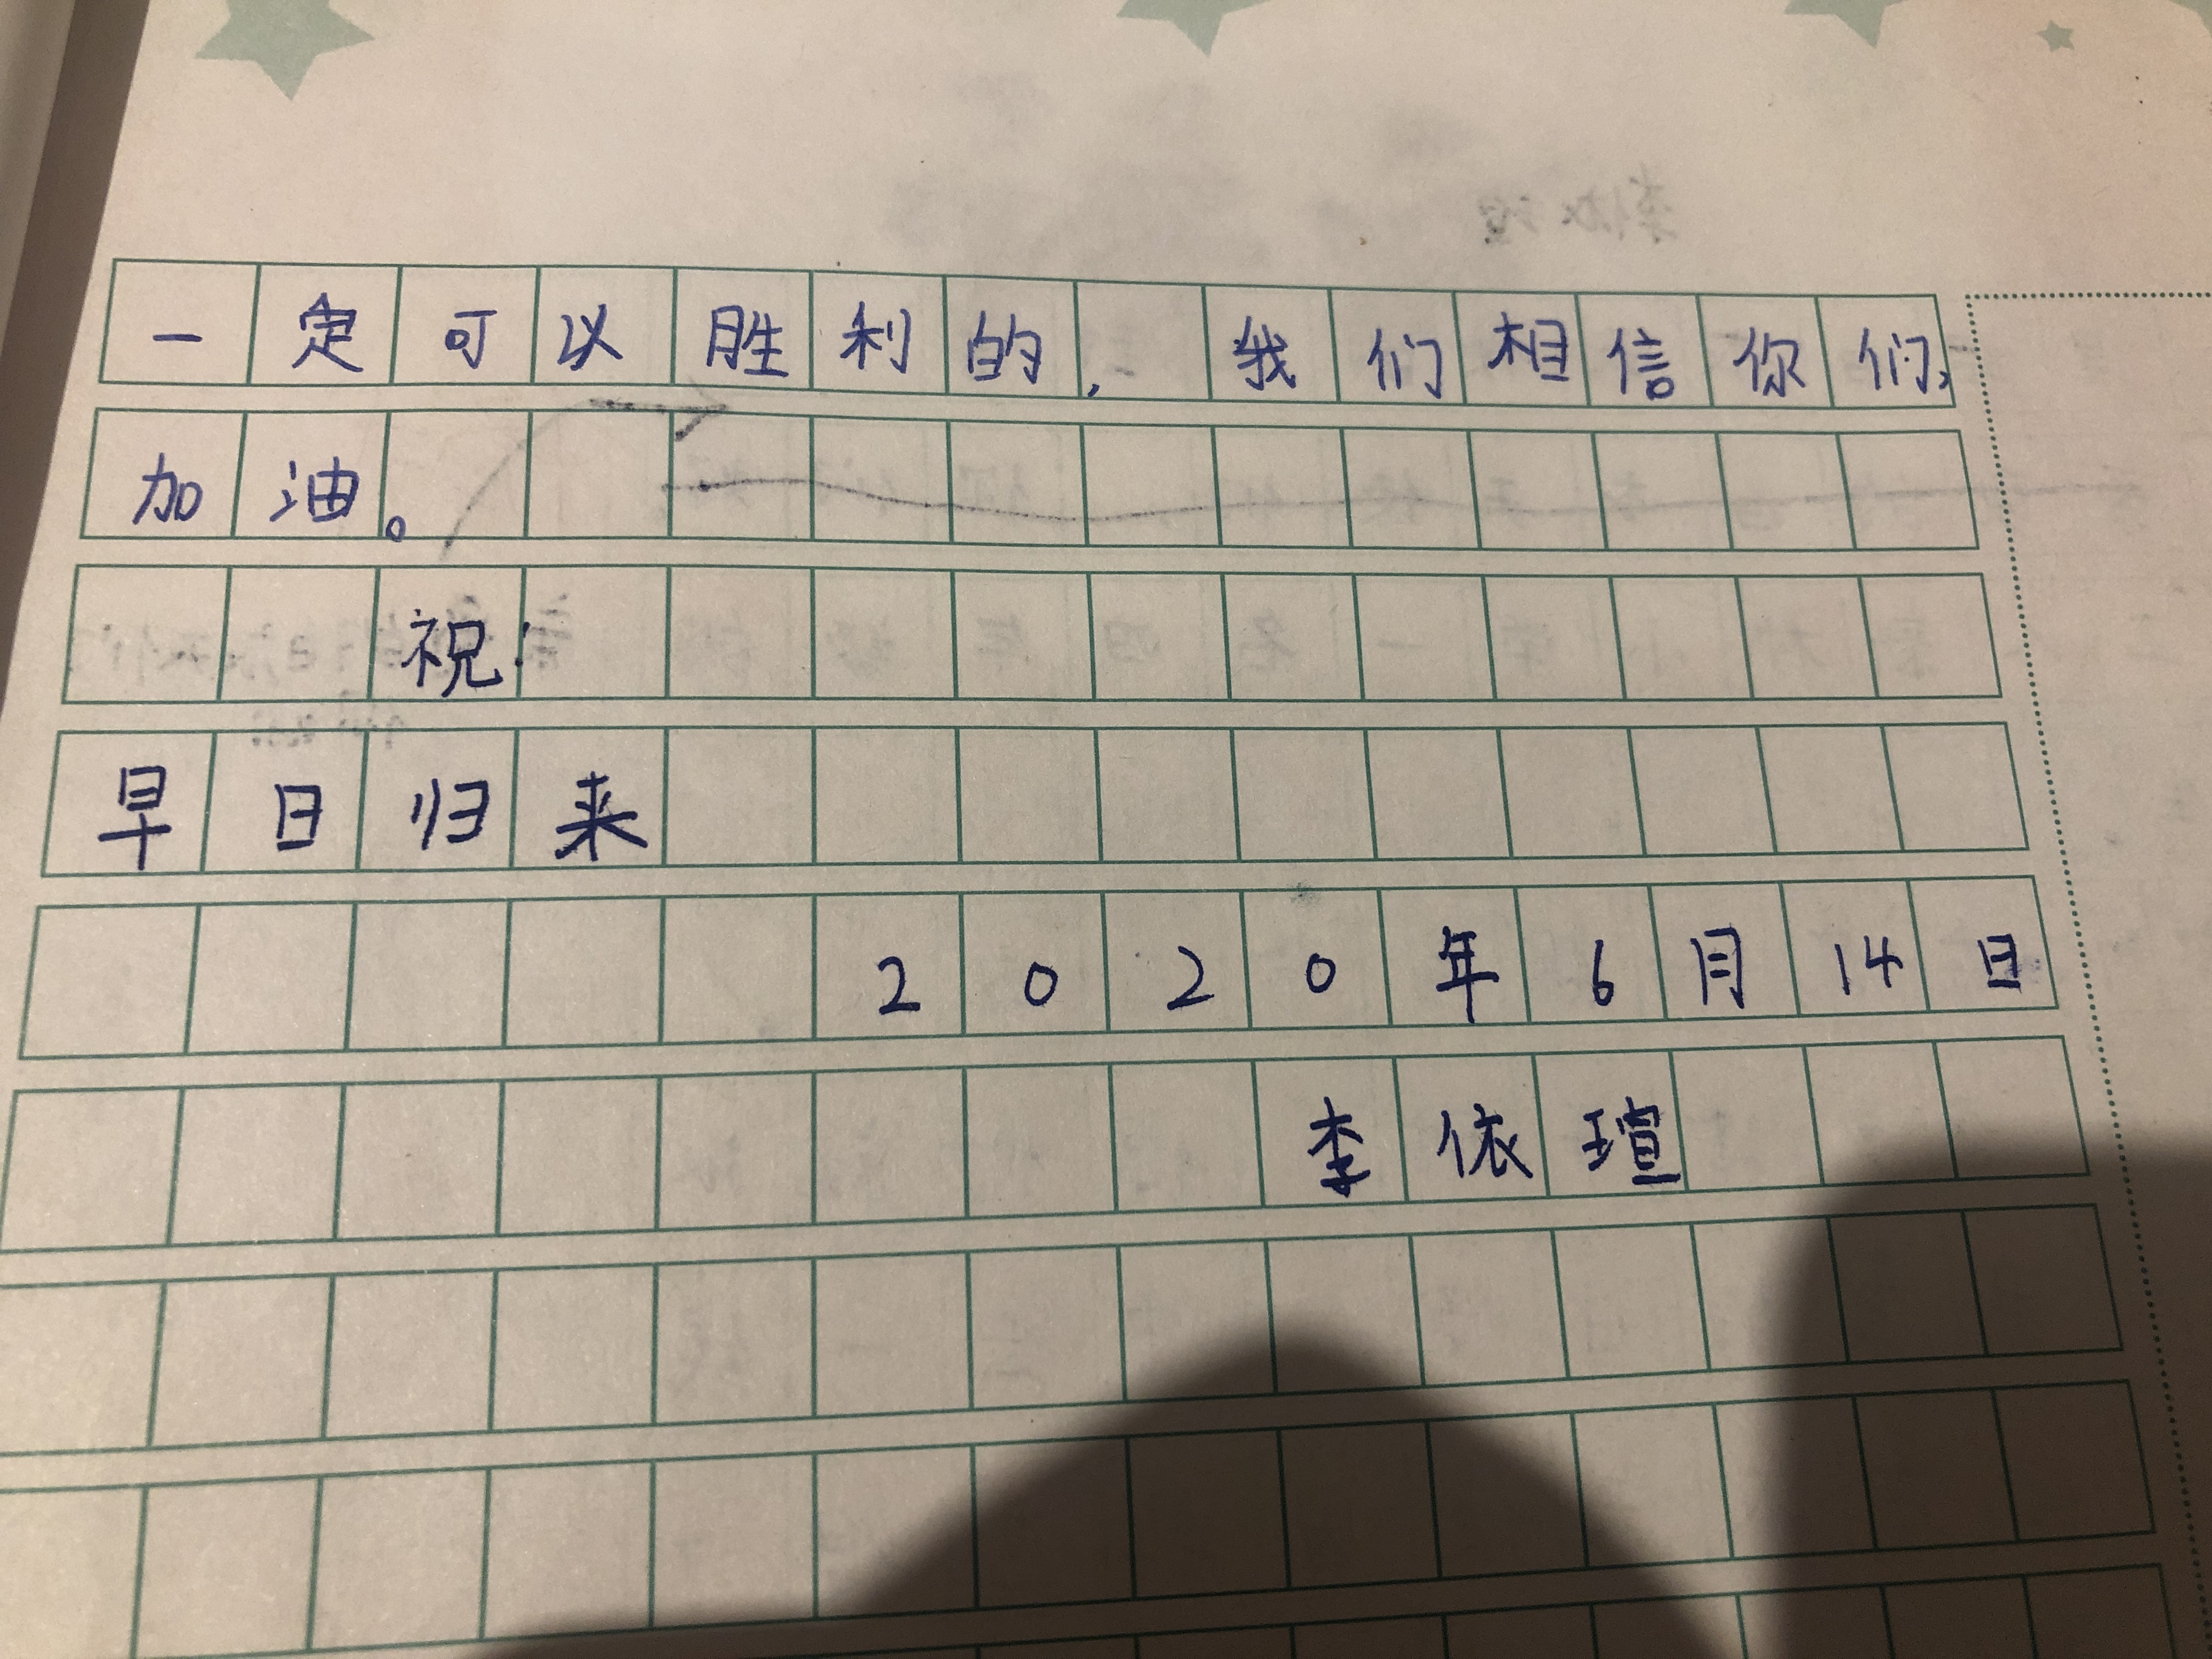 一定可以胜利的，我们相信你们，
加油。
祝：
早日归来
2020年6月14日
李依瑄